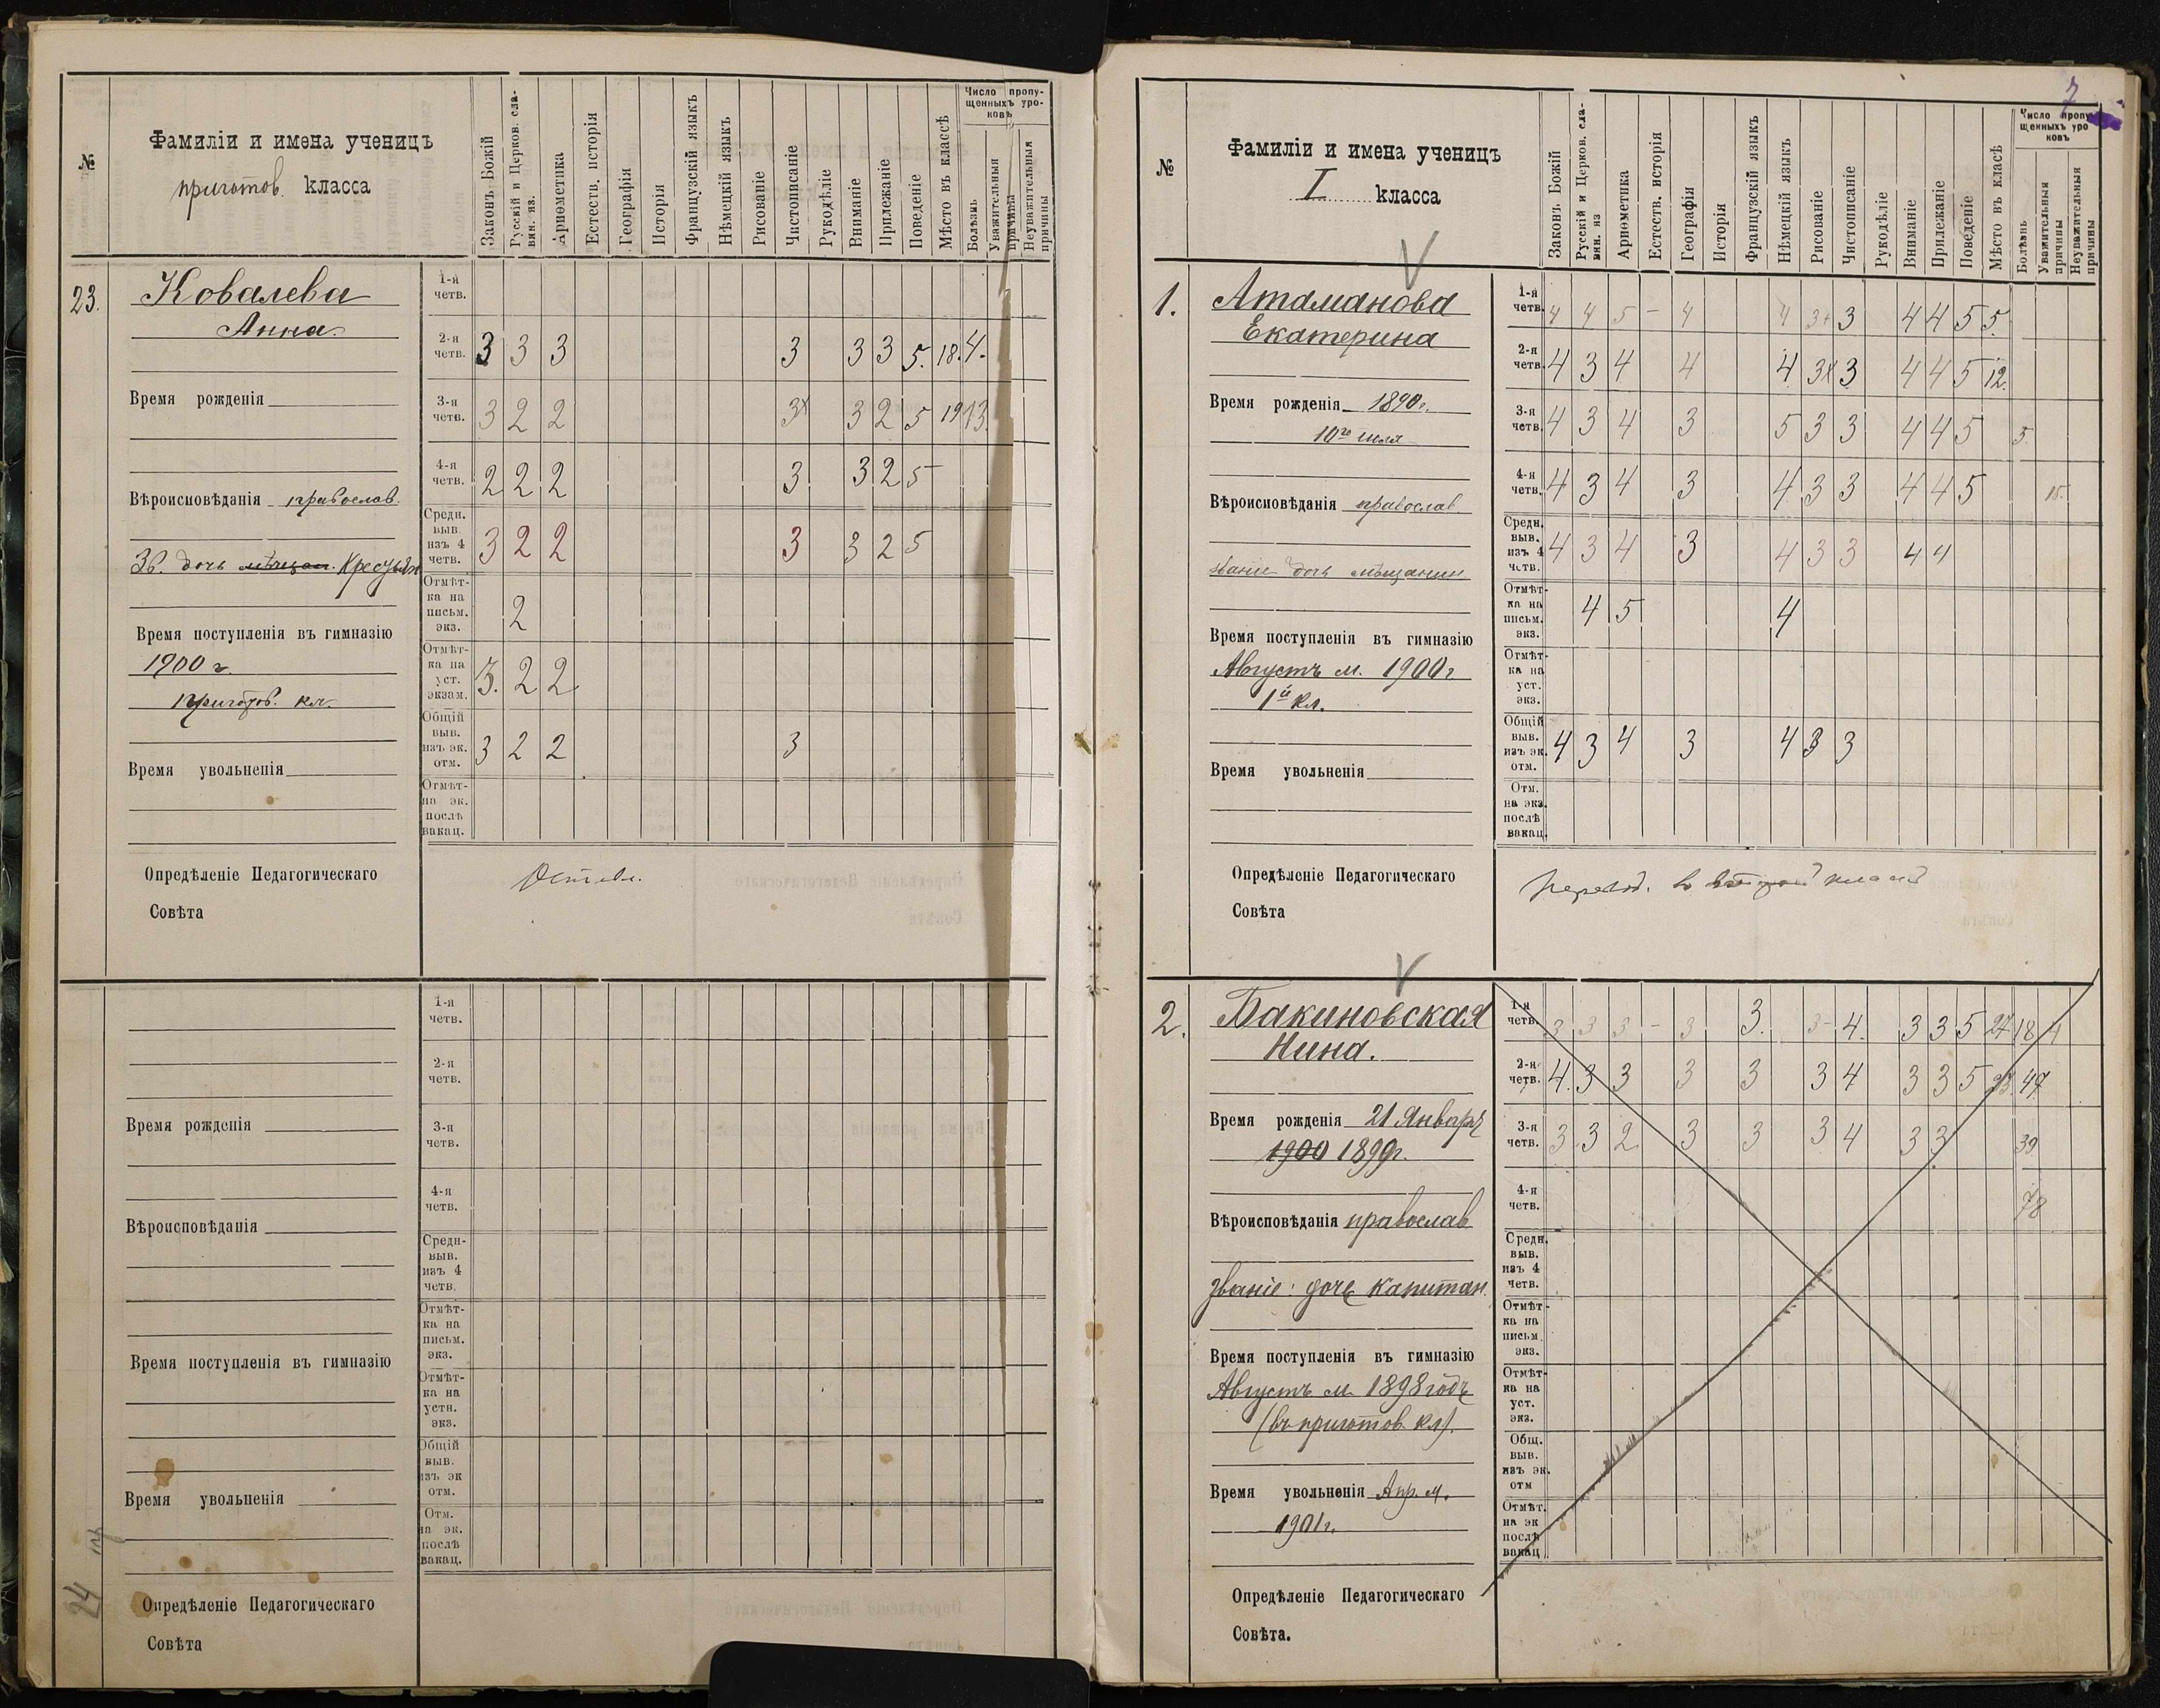 №
Фамиліи и имена ученицъ
приготов. класса
Законъ Божій
Русскій и Церков. сла-
вян. яз.
Ариѳметика
Естеств. исторія
Географія
Исторія
Французскій языкъ
Нѣмецкій языкъ
Рисованіе
Чистописаніе
Рукодѣліе
Вниманіе
Прилежаніе
Поведеніе
Мѣсто въ классѣ
Число пропу-
щенныхъ уро-
ковъ
Болѣзнь
Уважительныя
причины
Неуважительныя
причины
23.
Ковалева
Анна.
Время рожденія
Вѣроисповѣданія православ.
Зв. дочь мѣщан. Крестьян
Время поступленія въ гимназію
1900 г.
приготов. кл.
Время увольненія
1-я
четв.
2-я
четв. 3 3 3 3 3 3 5. 18. 4.
3-я
четв. 3 2 2 3х 3 2 5 19 13.
4-я
четв. 2 2 2 3 3 2 5
Средн.
выв.
изъ 4
четв. 3 2 2 3 3 2 5
Отмѣт-
ка на
письм.
экз. 2
Отмѣт-
ка на
уст.
экзам. 3. 2 2
Общій
выв.
изъ эк.
отм. 3 2 2 3
Отмѣт-
на эк.
послѣ
вакац.
Опредѣленіе Педагогическаго
Совѣта
Оставл.
1-я
четв.
2-я
четв.
Время рожденія
3-я
четв.
4-я
четв.
Вѣроисповѣданія
Средн-
выв.
изъ 4
четв.
Отмѣт-
ка на
письм.
экз.
Время поступленія въ гимназію
Отмѣт-
ка на
устн.
экз.
Общій
выв.
изъ эк
отм.
Время увольненія
Отм.
на эк.
послѣ
вакац.
24
Опредѣленіе Педагогическаго
Совѣта
7
№
Фамиліи и имена ученицъ
I класса
Законъ Божій
Русскій и Церков. сла-
вян. яз
Ариѳметика
Естеств. исторія
Географія
Исторія
Французскій языкъ
Нѣмецкій языкъ
Рисованіе
Чистописаніе
Рукодѣліе
Вниманіе
Прилежаніе
Поведеніе
Мѣсто въ класѣ
Число пропу
щенныхъ уро
ковъ
Болѣзнь
Уважительныя
причины
Неуважительныя
причины
1.
Атаманова
Екатерина
Время рожденія 1890 г.
10го июля
Вѣроисповѣданія православ.
званіе дочь мѣщанин
Время поступленія въ гимназію
Августъ м. 1900 г
1й кл.
Время увольненія
1-я
четв. 4 4 5 - 4 4 3+ 3 4 4 5 5.
2-я
четв. 4 3 4 4 4 3х 3 4 4 5 12.
3-я
четв. 4 3 4 3 5 3 3 4 4 5 5
4-я
четв. 4 3 4 3 4 3 3 4 4 5 15.
Средн.
выв.
изъ 4
четв. 4 3 4 3 4 3 3 4 4
Отмѣт-
ка на
письм.
экз. 4 5 4
Отмѣт-
ка на
уст.
экз.
Общій
выв.
изъ эк.
отм. 4 3 4 3 4 3 3
Отм.
на экз.
послѣ
вакац.
Опредѣленіе Педагогическаго
Совѣта
перевод. в второй класс
2.
Бакиновская
Нина.
Время рожденія 21 Январ
1900 1890 г.
Вѣроисповѣданія православ
званіе: дочь капитан.
Время поступленія въ гимназію
Августъ м. 1898 годъ
(въ приготов. кл).
Время увольненія Апр. м.
1901 г.
1-я
четв. 3 3 3 - 3 3. 3- 4. 3 3 5 27 18 4
2-я
четв. 4. 3 3 3 3 3 4 3 3 5 23. 47
3-я
четв. 3 3 2 3 3 3 4 3 3 39
4-я
четв. 78
Средн.
выв.
изъ 4
четв.
Отмѣт-
ка на
письм.
экз.
Отмѣт-
ка на
уст.
экз.
Общ.
выв.
изъ эк.
отм
Отмѣт.
на эк
послѣ
вакац
Опредѣленіе Педагогическаго
Совѣта.